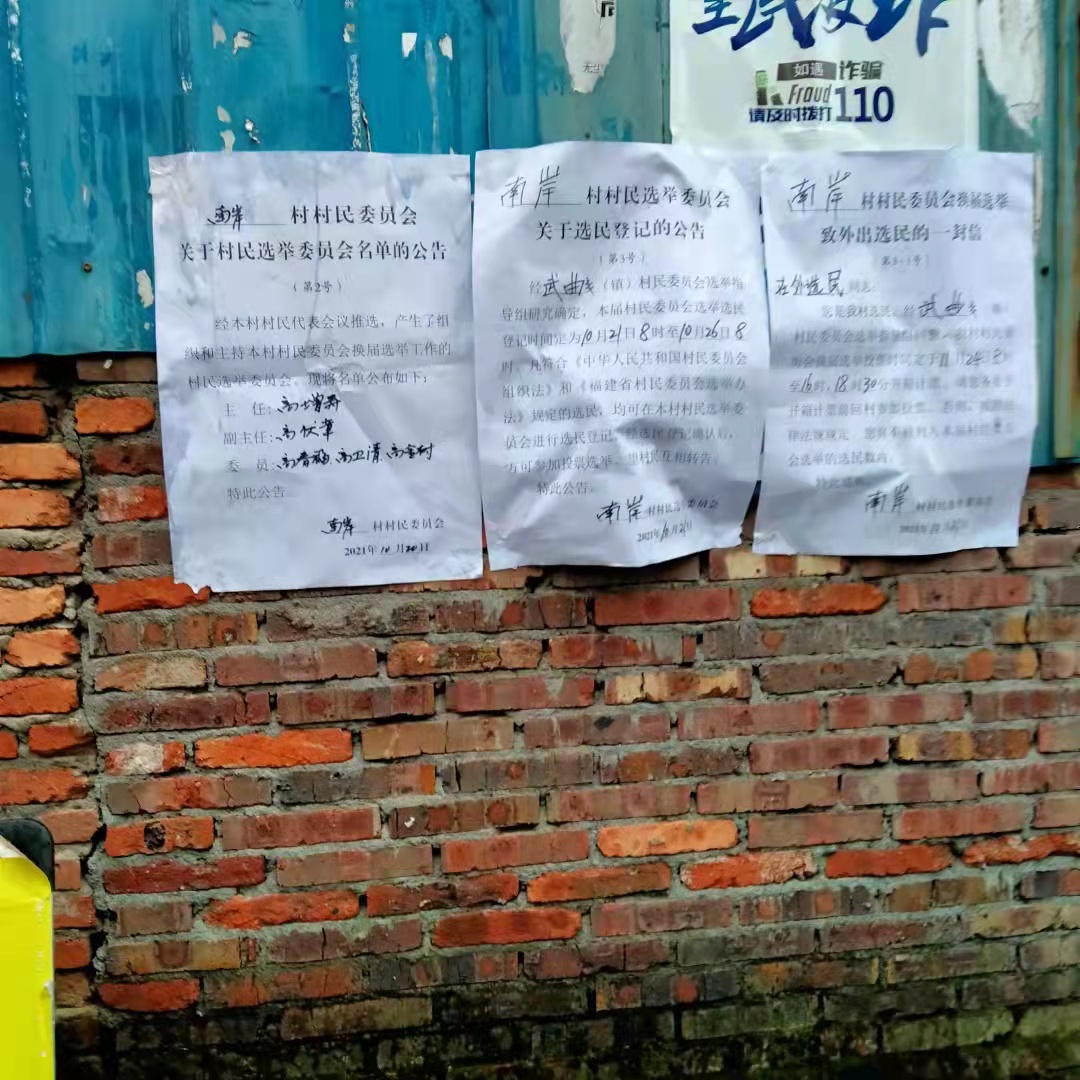 全民反诈
如遇诈骗
Fraud
请及时拨打110
南岸 村村民委员会
关于村民选举委员会名单的公告
（第2号）
经本村村民代表会议推选，产生了组
织和主持本村村民委员会换届选举工作的
村民选举委员会。现将名单公布如下：
主 任：
副主任：
委 员：
特此公告
南岸 村村民委员会
2021年10月20日
南岸 村村民选举委员会
关于选民登记的公告
（第3号）
经武曲乡（镇）村民委员会选举指
导组研究确定，本届村民委员会选举选民
登记时间定为10月21日8时至10月26日8
时，凡符合《中华人民共和国村民委员会
组织法》和《福建省村民委员会选举办
法》规定的选民，均可在本村村民选举委
员会进行选民登记，经选民登记确认后，
方可参加投票选举。望村民互相转告。
特此公告。
南岸 村村民选举委员会
2021年10月21日
南岸 村村民委员会换届选举
致外出选民的一封信
（第3-1号）
在外选民 同志：
您是我村选民，经 武曲乡
村民委员会选举
至16时，18时30分开箱计票
开箱计票前回村参加投票
律法规规定，您将不被列入本届村民委员
会选举的选民数内。
特此
南岸 村村民选举委员会